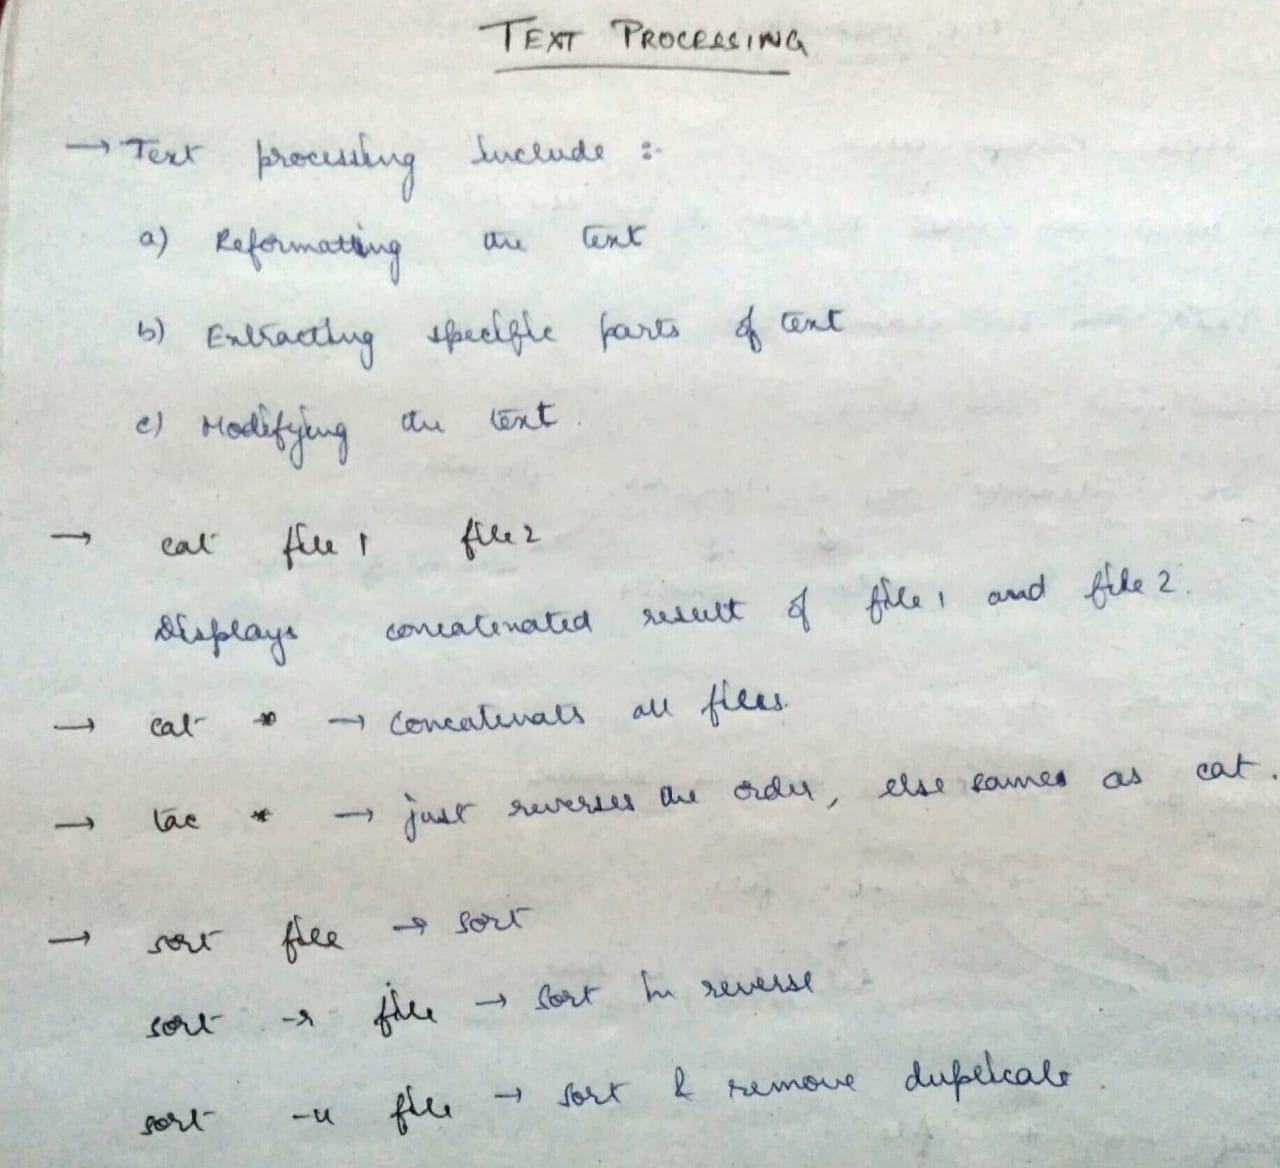 TEXT PROCESSING
→ Text processing include :-
a) Reformatting the text
b) Extracting specific parts of text
c) Modifying the text.
→ cat file 1 file 2
Displays concatenated result of file 1 and file 2.
→ cat * → concatenats all files.
→ tac * → just reverses the order, else sames as cat.
→ sort file → sort
sort -r file → sort in reverse
sort -u file → sort & remove duplicate.